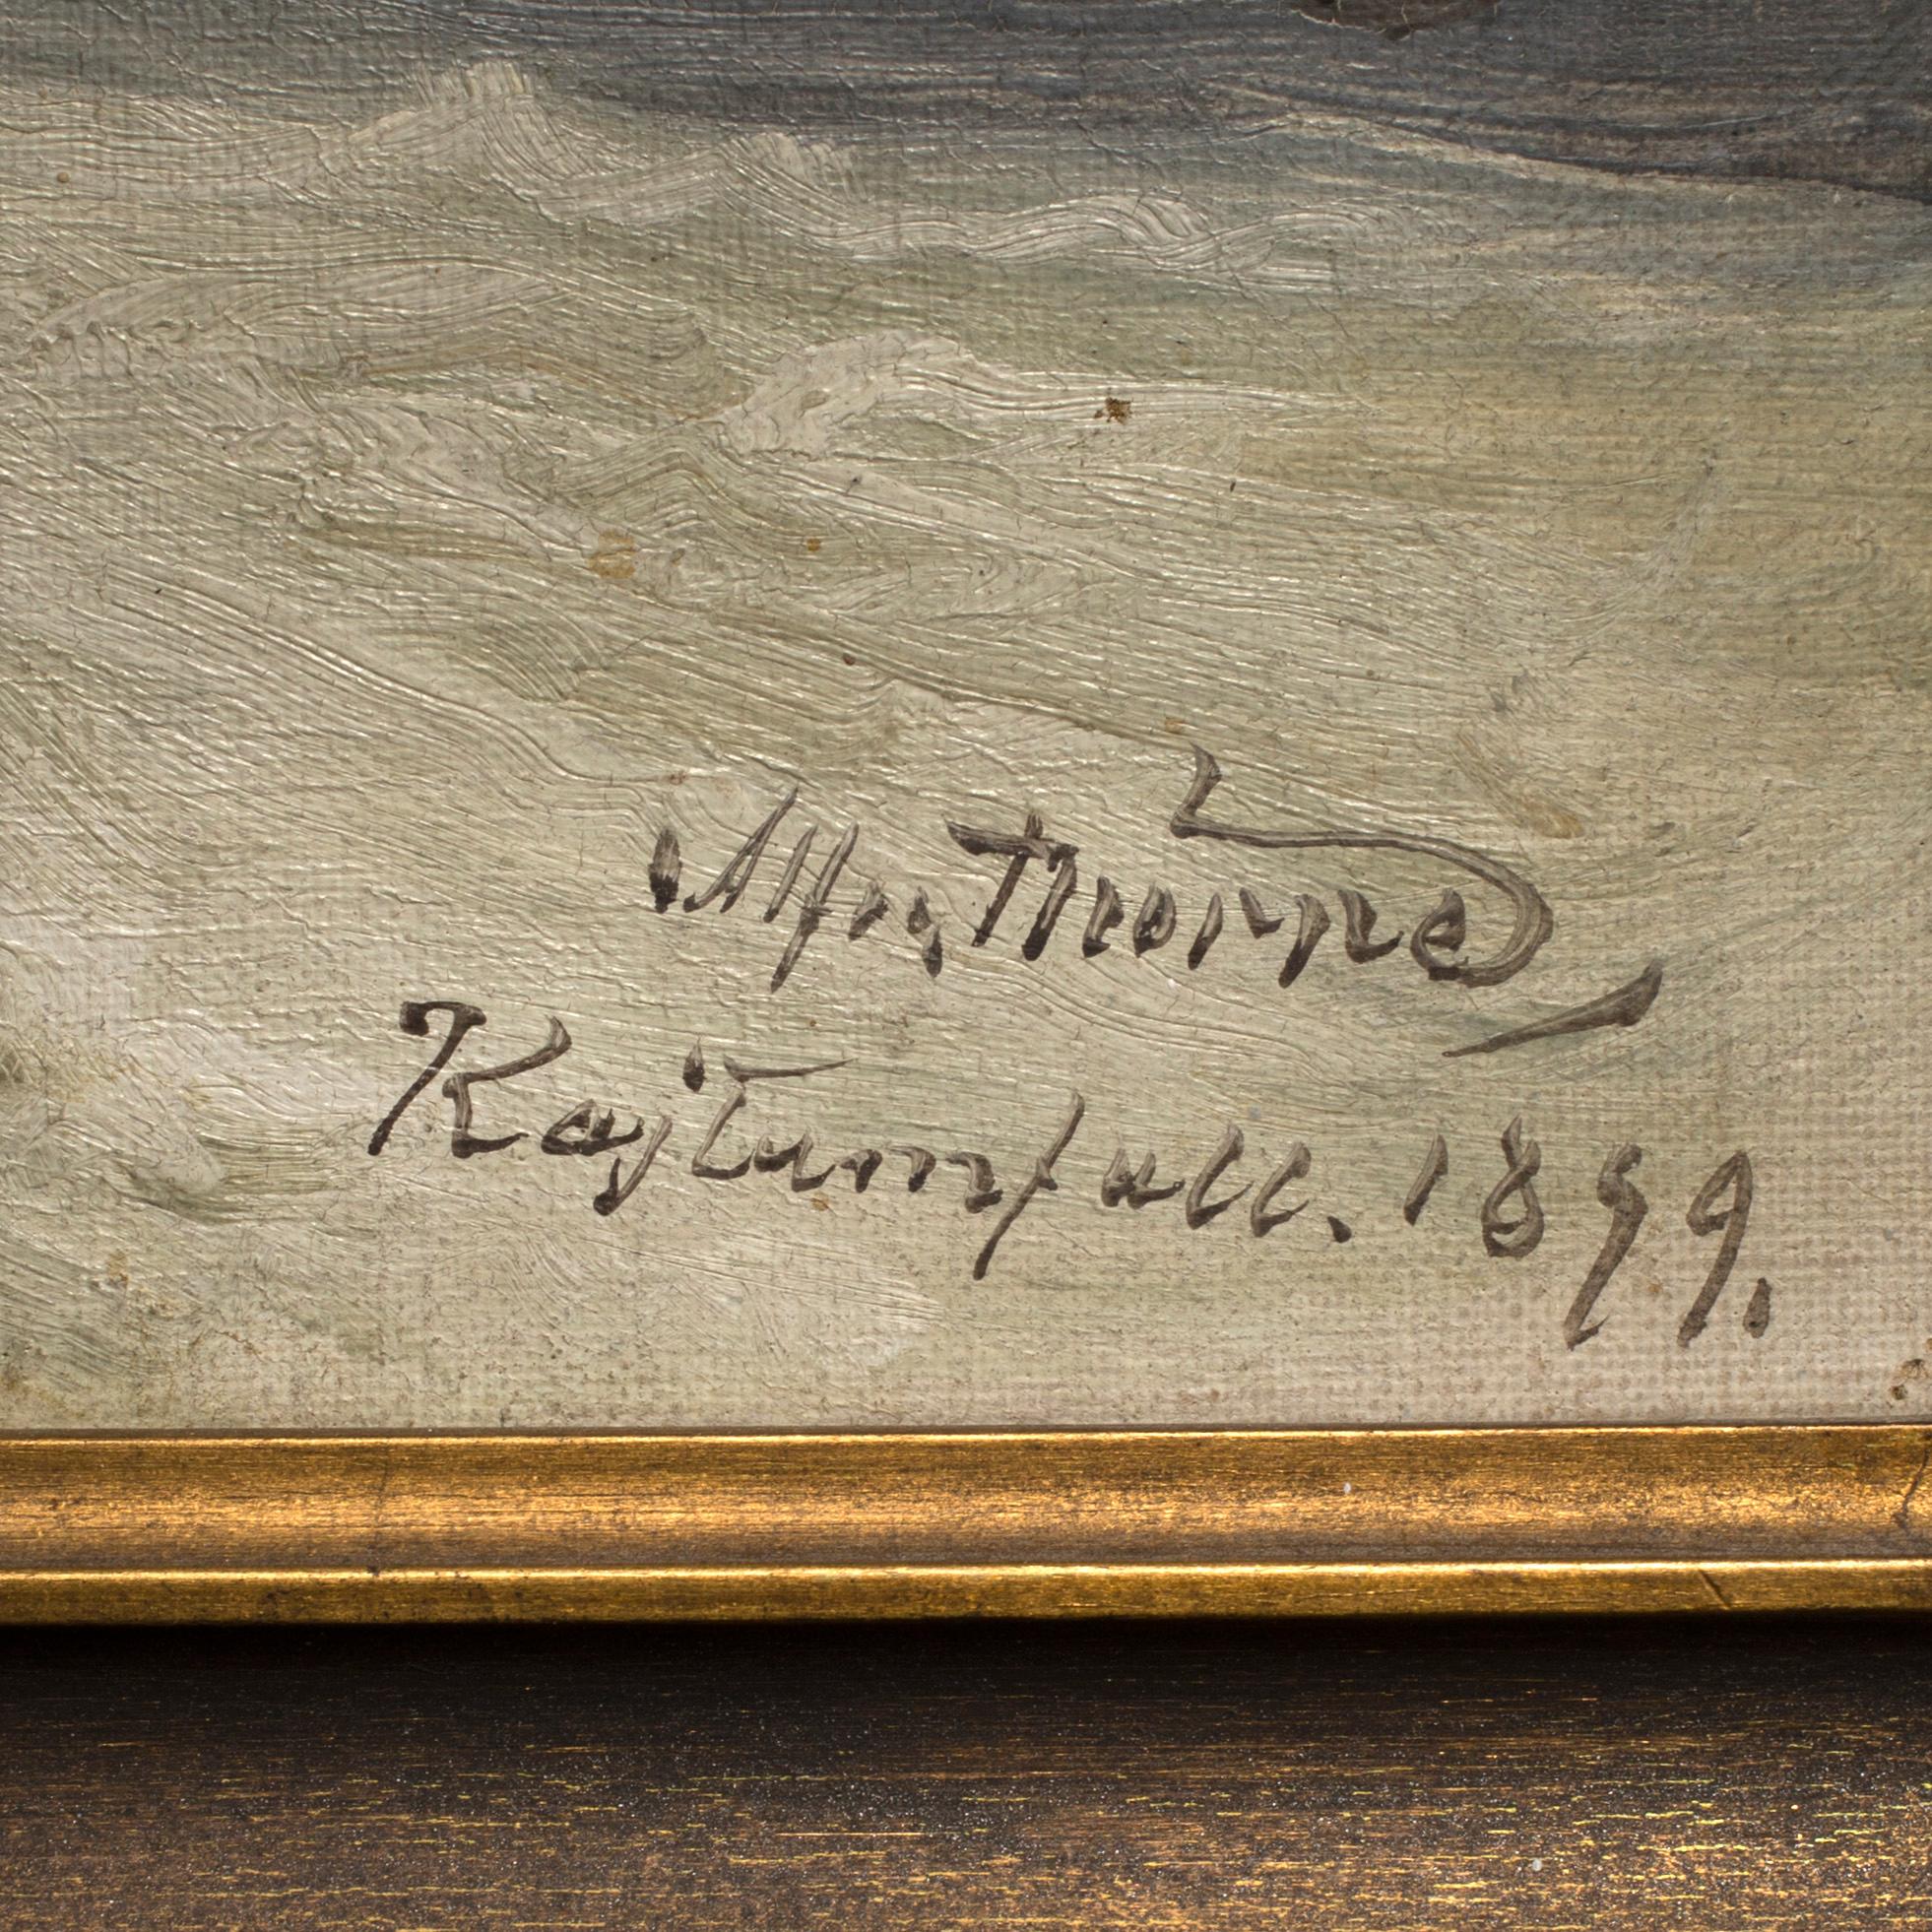 Alfr. Thörne
Kajtumfall. 1899.